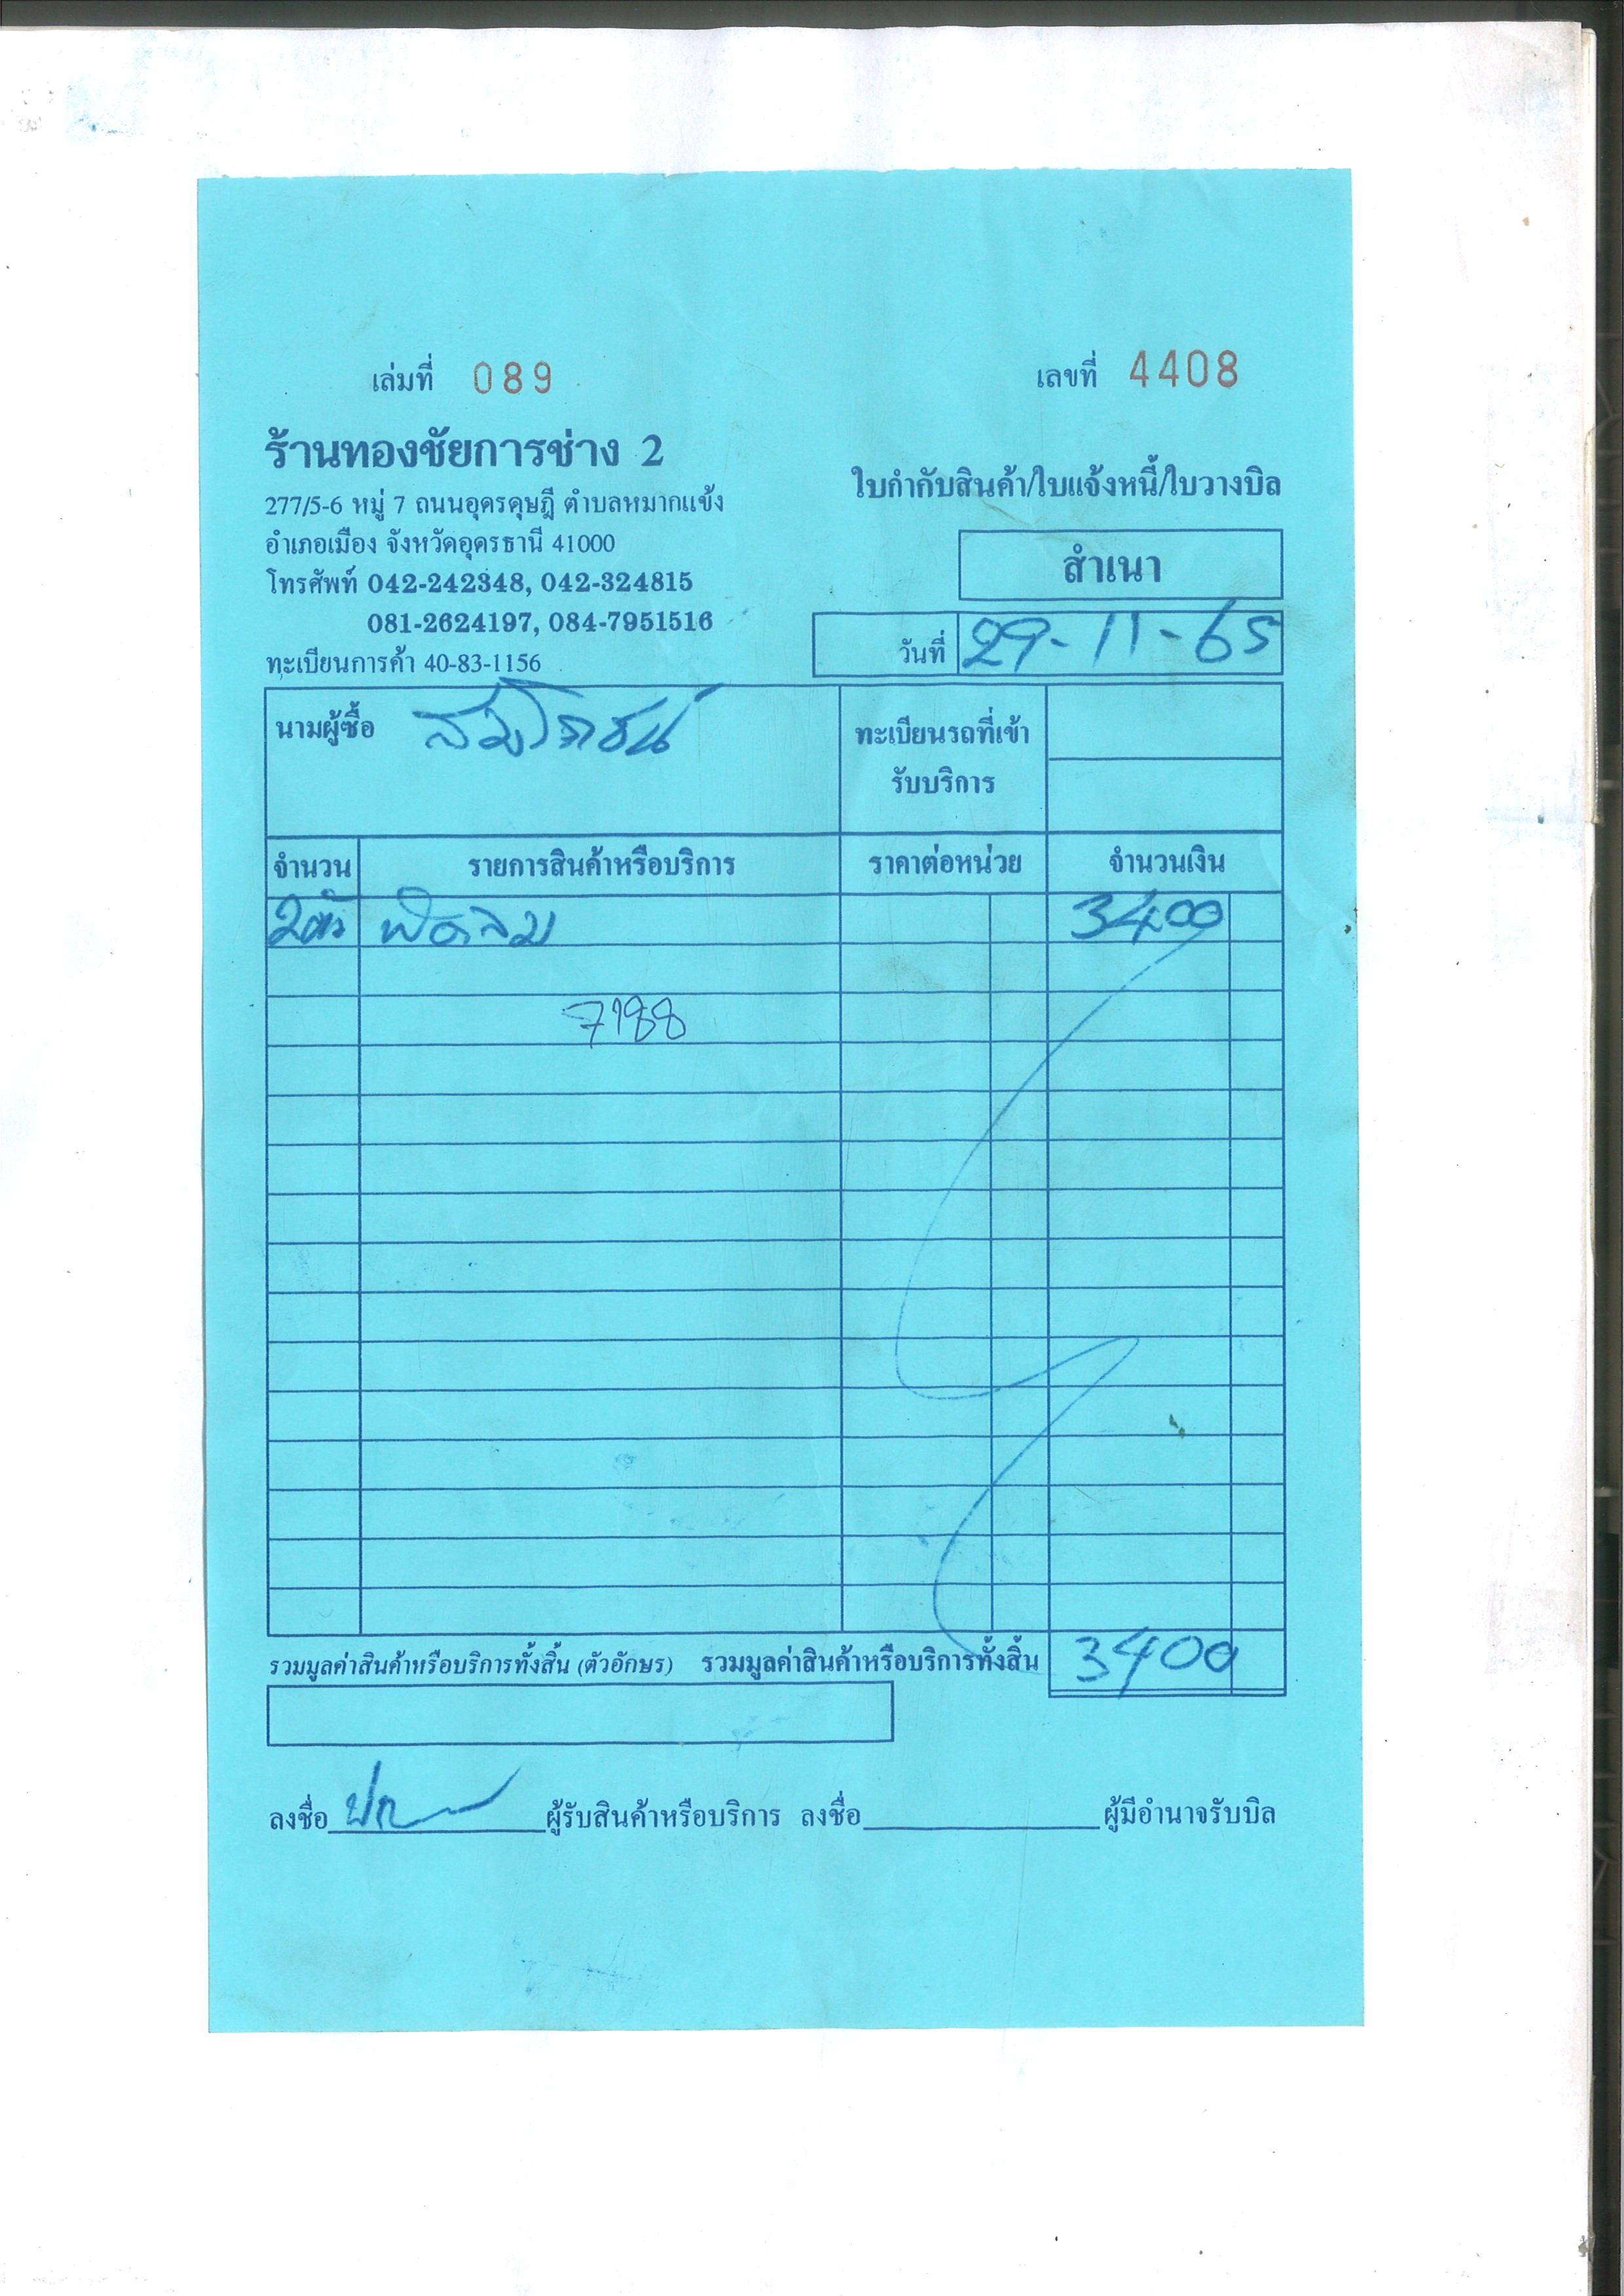 เล่มที่ 089
เลขที่ 4408
ร้านทองชัยการช่าง 2
277/5-6 หมู่ 7 ถนนอุดรดุษฎี ตำบลหมากแข้ง
อำเภอเมือง จังหวัดอุดรธานี 41000
โทรศัพท์ 042-242348, 042-324815
081-2624197, 084-7951516
ทะเบียนการค้า 40-83-1156
ใบกำกับสินค้า/ใบแจ้งหนี้/ใบวางบิล
สำเนา
วันที่ 29-11-65
นามผู้ซื้อ
ทะเบียนรถที่เข้า
รับบริการ
จำนวน รายการสินค้าหรือบริการ ราคาต่อหน่วย จำนวนเงิน
2ตัว พัดลม 3400
7188
รวมมูลค่าสินค้าหรือบริการทั้งสิ้น (ตัวอักษร) รวมมูลค่าสินค้าหรือบริการทั้งสิ้น 3400
ลงชื่อ ผู้รับสินค้าหรือบริการ ลงชื่อ ผู้มีอำนาจรับบิล